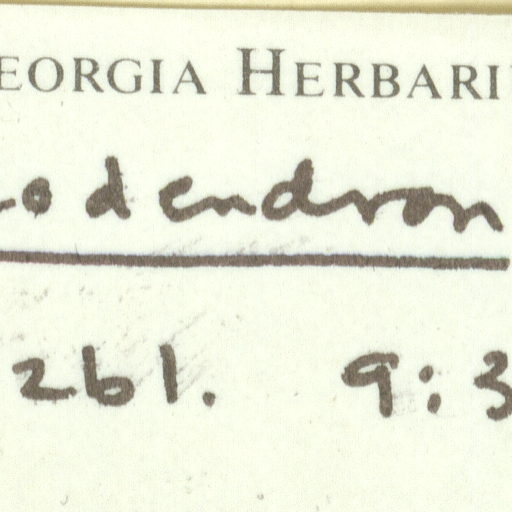 EORGIA HERBARI
odendron
2b1. 9:3